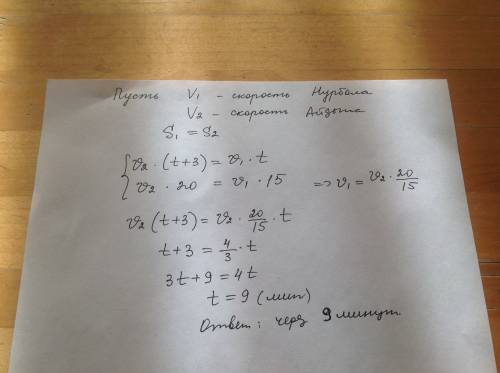 Пусть V₁ - скорость Нурбола
V₂ - скорость Айдына
S₁ = S₂
{ v₂ · (t+3) = v₁ · t
v₂ · 20 = v₁ · 15 => v₁ = v₂ · 20/15
v₂ (t+3) = v₂ · 20/15 · t
t+3 = 4/3 · t
3t+9 = 4t
t = 9 (мин)
Ответ: через 9 минут.